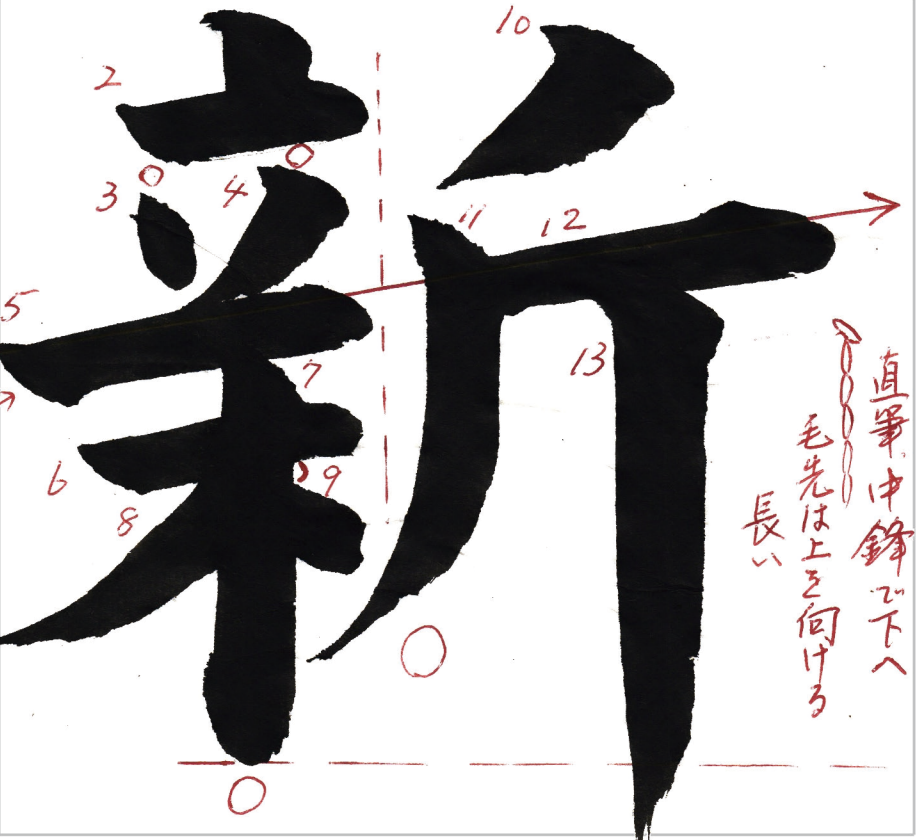 新
2
3
4
5
6
7
8
9
10
11
12
13
直筆、中鋒で下へ
毛先は上を向ける
長い